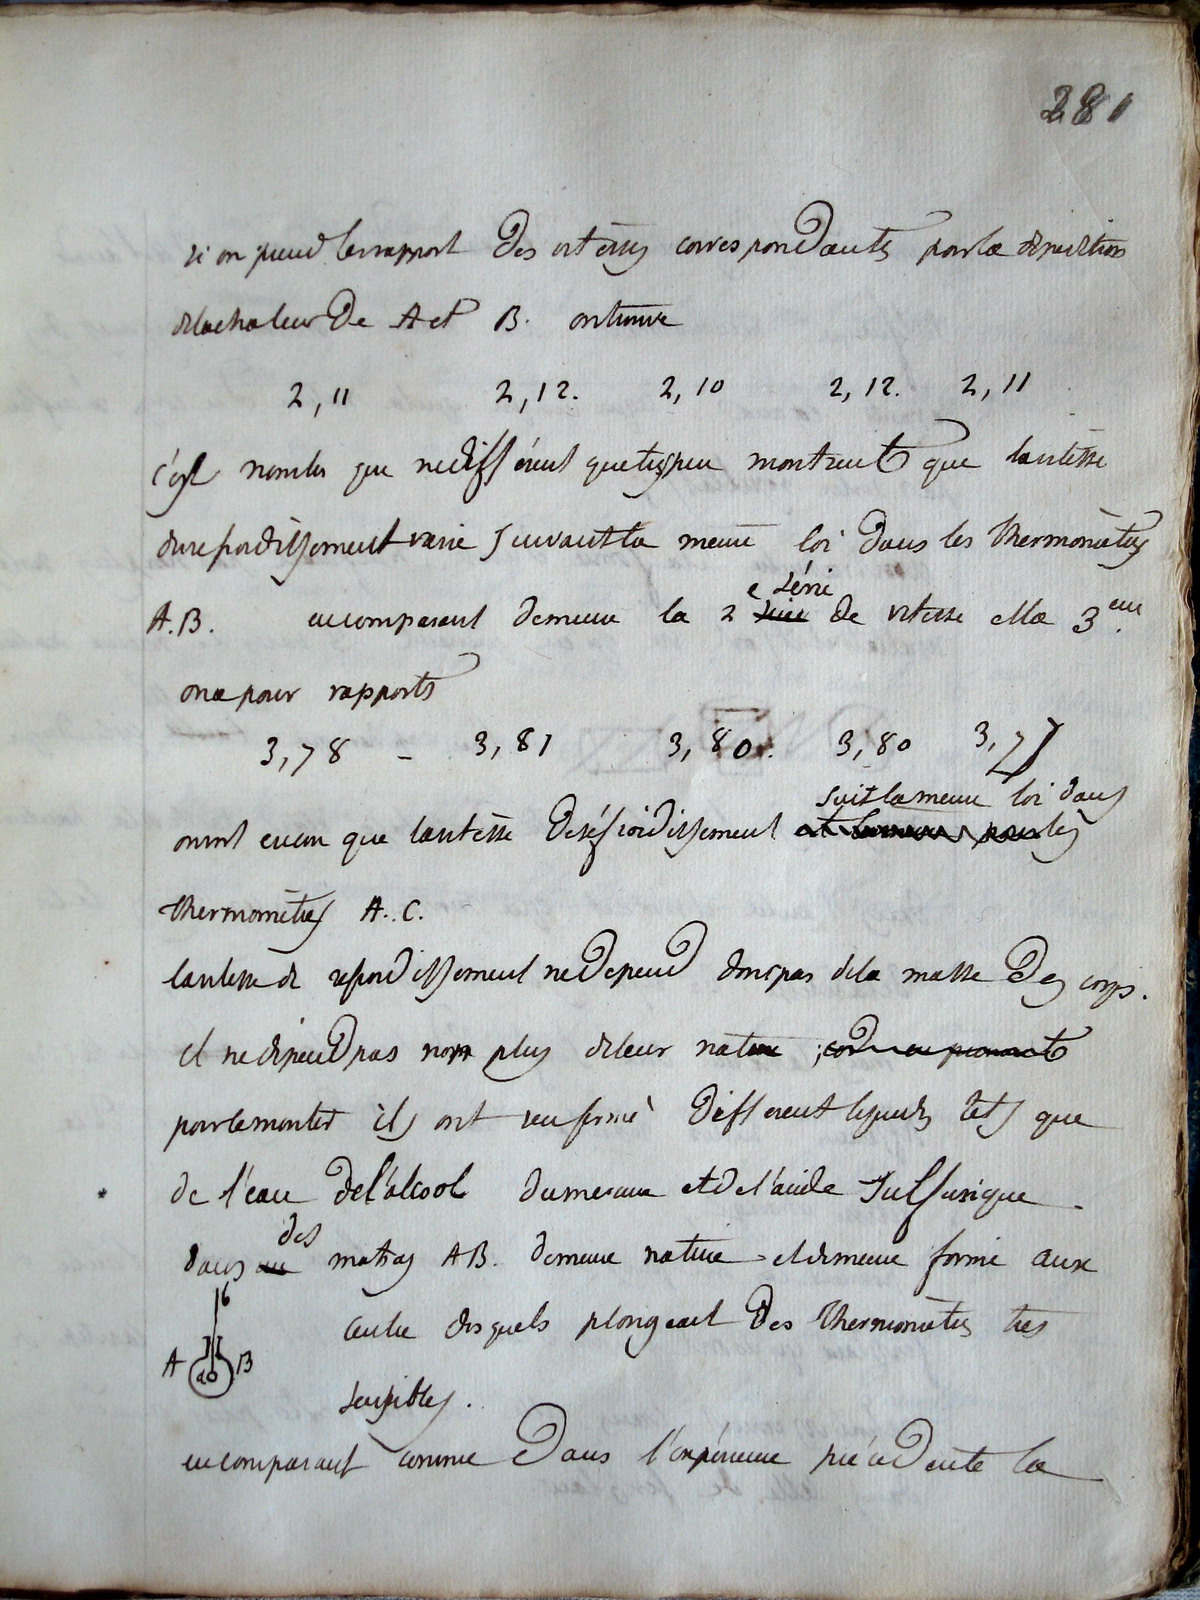 281
si on prend le rapport des vitesses correspondantes pour la deperdition
de la chaleur de A et B. on trouve
2,11 2,12. 2,10 2,12. 2,11
c'est nombres que ne diffèrent que très peu montrent que la vitesse
du refroidissement varie suivant la meme loi dans les thermomètres
A.B. en comparant de meme la 2 e série de vitesse et la 3eme.
on a pour rapports
3,78 - 3,81 3,80. 3,80 3,77
suit la meme loi dans
encore que la vitesse de réfroidissement est la meme pour les
thermomètres A.C.
la vitesse de refroidissement ne depend donc pas de la masse des corps.
il ne depend pas non plus de leur nature
pour le montrer ils ont renfermé different liquides tels que
de l'eau de l'alcool du mercure et de l'acide sulfurique
des
dans un matras AB. de meme nature et de meme forme aux
centre desquels plongeait des thermomètres tres
A B
sensibles.
en comparant comme dans l'expérience précédente la